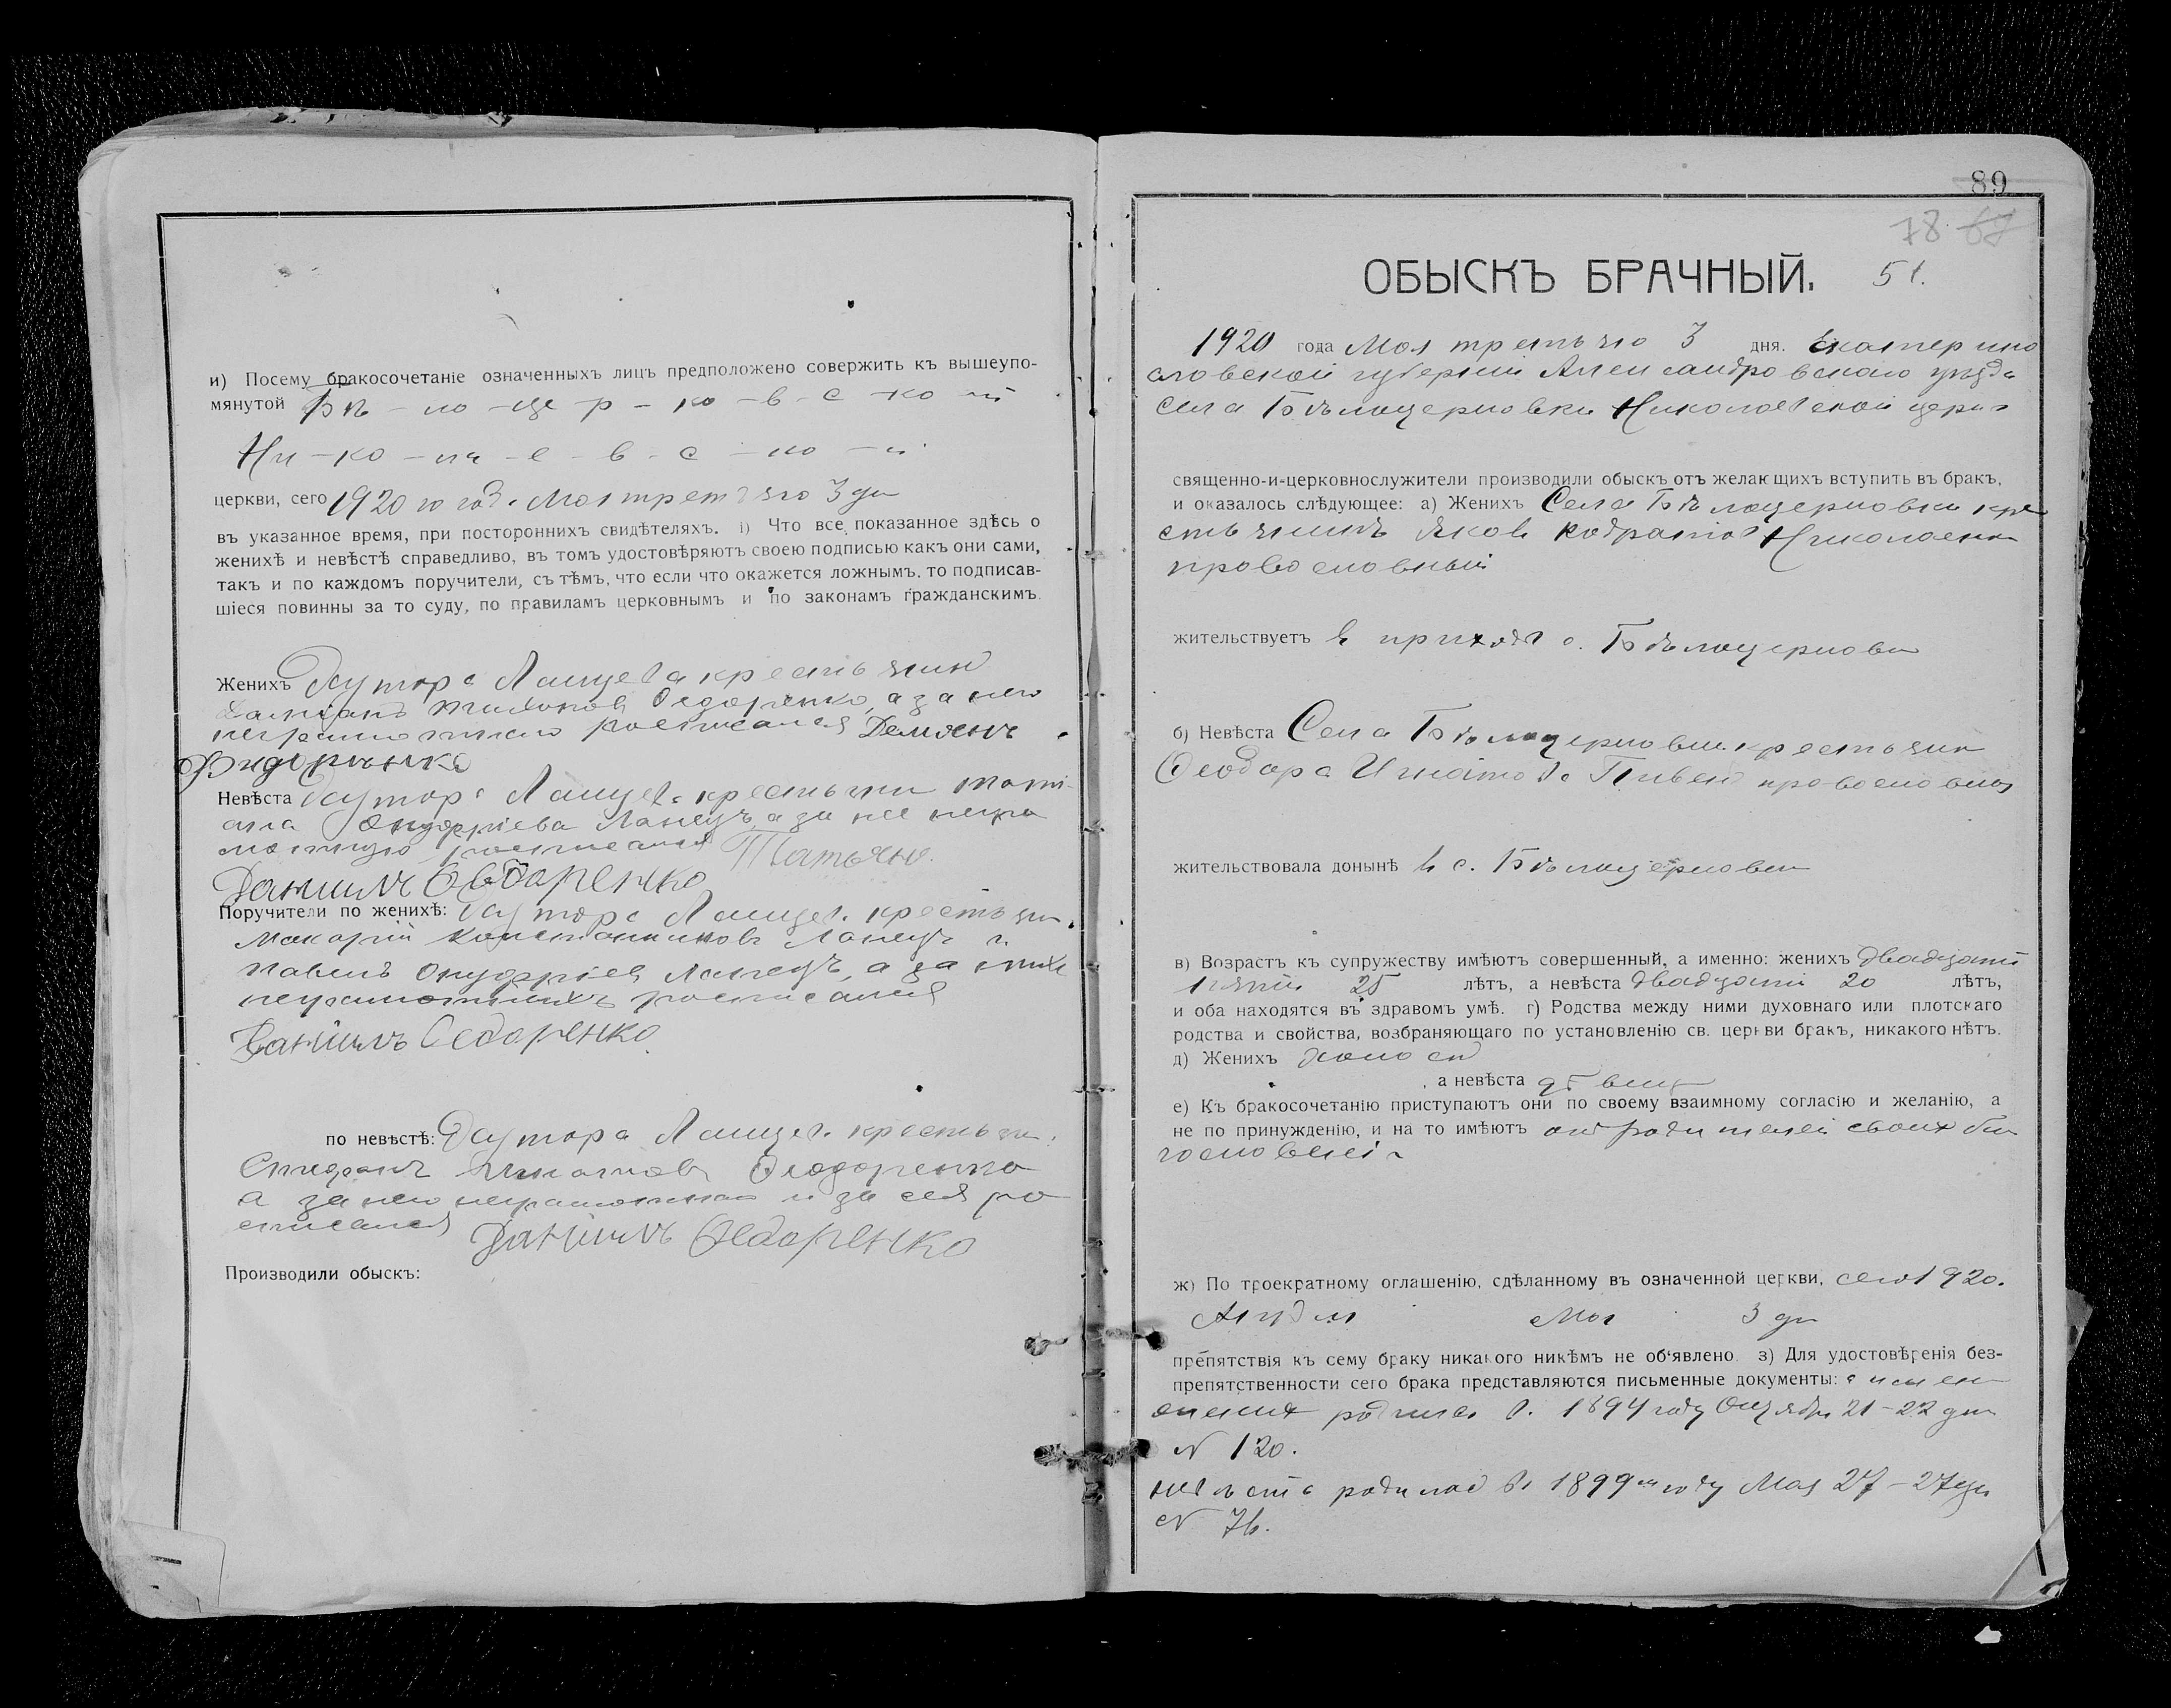 и) Посему бракосочетаніе означенныхъ лицъ предположено совержить къ вышеупо-
мянутой Бѣ-ло-це-р-ко-в-с-ко-й
Ни-ко-ла-е-в-с-ко-й
церкви, сего 1920 го года Мая третьяго 3 дн
въ указанное время, при постороннихъ свидѣтеляхъ. і) Что все показанное здѣсь о
женихѣ и невѣстѣ справедливо, въ томъ удостовѣряютъ своею подписью какъ они сами,
такъ и по каждомъ поручители, съ тѣмъ, что если что окажется ложнымъ, то подписав-
шіеся повинны за то суду, по правиламъ церковнымъ и по законамъ гражданскимъ.
Женихъ Хутора крестьянин
Ѳедоренко, а за него
неграмотнаго росписался Демянъ
Видорѣнко
Невѣста Хутора крестьянк
а за нее негра
мотную росписался Татьяно.
Данiилъ Ѳедоренко
Поручители по женихѣ: Хутора крестьян.
Макарій Константиновъ и
Павелъ а за них
неграмотныхъ росписался
Данiилъ Ѳедоренко
по невѣстѣ: Хутора крестьян.
Стефанъ Игнатовъ Ѳеодоренко
а за него неграмотнаго и за себя ро
списался Данiилъ Ѳедоренко
Производили обыскъ:
89
78 67
ОБЫСКЪ БРАЧНЫЙ. 51.
1920 года Мая третьяго 3 дня. Екатерино
славской губерніи Александровскаго уѣзда
села Бѣлоцерковки Николаевской церкв
священно-и-церковнослужители производили обыскъ отъ желающихъ вступить въ бракъ,
и оказалось слѣдующее: а) Женихъ Села Бѣлоцерковки кре
стьянинъ Яков Кодратов Николаенко
провославный
жительствуетъ в приходѣ с. Бѣлоцерковки
б) Невѣста Села Бѣлоцерковки крестьянк
Ѳеодора Игнатова Пивень провославная
жительствовала донынѣ в с. Бѣлоцерковки
в) Возрастъ къ супружеству имѣютъ совершенный, а именно: женихъ двадцати
пяти 25 лѣтъ, а невѣста двадцати 20 лѣтъ,
и оба находятся въ здравомъ умѣ. г) Родства между ними духовнаго или плотскаго
родства и свойства, возбраняющаго по установленію св. церкви бракъ, никакого нѣтъ.
д) Женихъ холост
, а невѣста дѣвиц
е) Къ бракосочетанію приступаютъ они по своему взаимному согласію и желанію, а
не по принужденію, и на то имѣютъ от родителей своих бла
гословеніе
ж) По троекратному оглашенію, сдѣланному въ означенной церкви, сего 1920.
Апрѣля Мая 3 дн
препятствія къ сему браку никакого никѣмъ не об'явлено. з) Для удостовѣренія без-
препятственности сего брака представляются письменные документы:
жених родился в 1894 году Октября 21-22 дня
N 120.
невѣста родилась в 1899 м году Мая 27-27 дн
N 76.